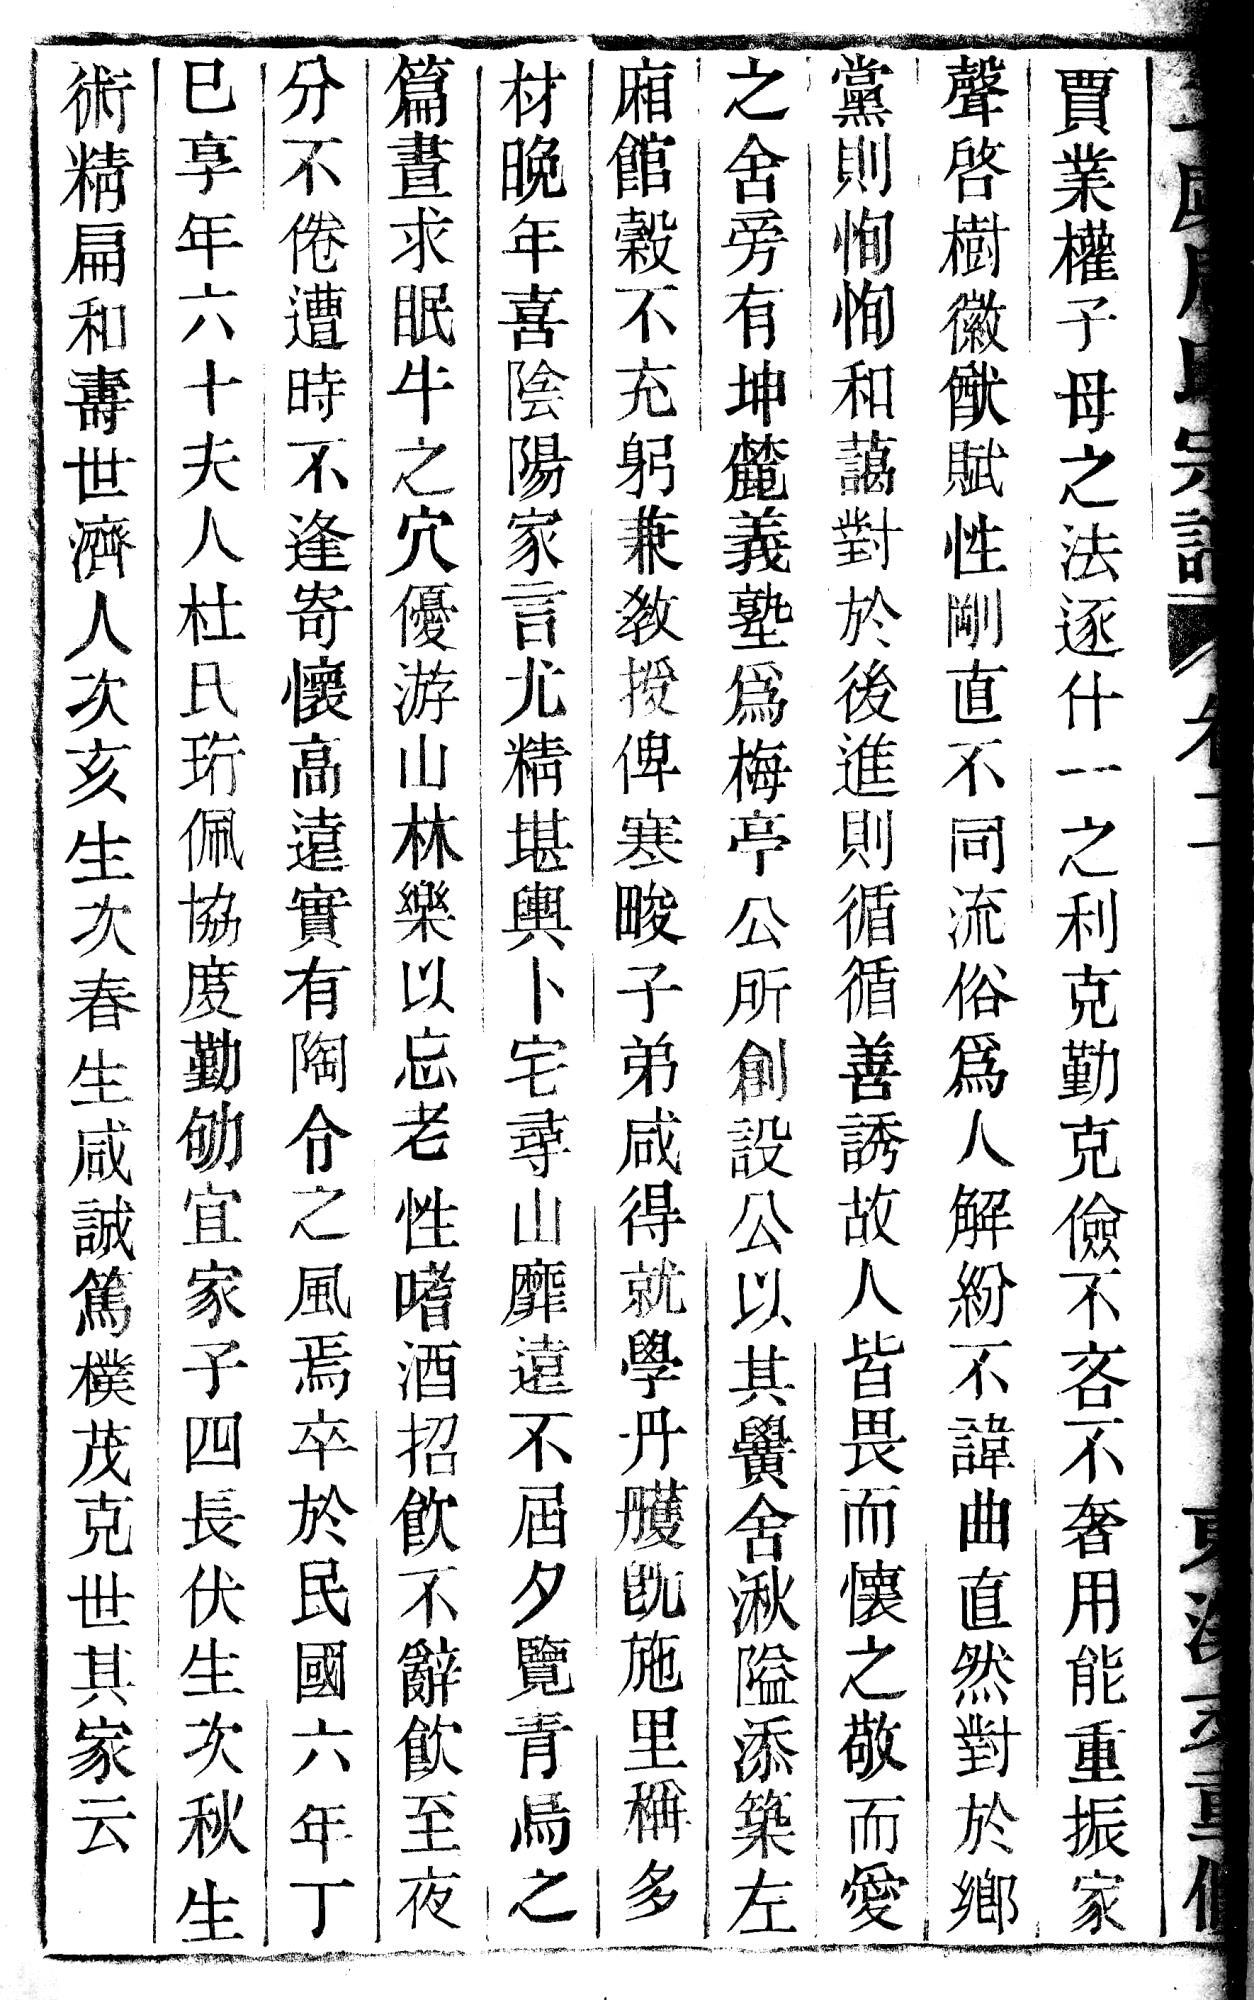 賈業權子母之法逐什一之利克勤克儉不吝不奢用能重振家
聲啓樹徽猷賦性剛直不同流俗爲人解紛不諱曲直然對於鄉
黨則恂恂和藹對於後進則循循善誘故人皆畏而懷之敬而愛
之舍旁有坤麓義塾爲梅亭公所創設公以其黌舍湫隘添築左
廂館穀不充躬兼教授俾寒畯子弟咸得就學丹雘旣施里稱多
材晚年喜陰陽家言尤精堪輿卜宅尋山靡遠不屆夕覽青烏之
篇晝求眠牛之穴優游山林樂以忘老性嗜酒招飲不辭飲至夜
分不倦遭時不逢寄懷高遠實有陶令之風焉卒於民國六年丁
巳享年六十夫人杜氏珩佩協度勤劬宜家子四長伏生次秋生
術精扁和壽世濟人次亥生次春生咸誠篤樸茂克世其家云